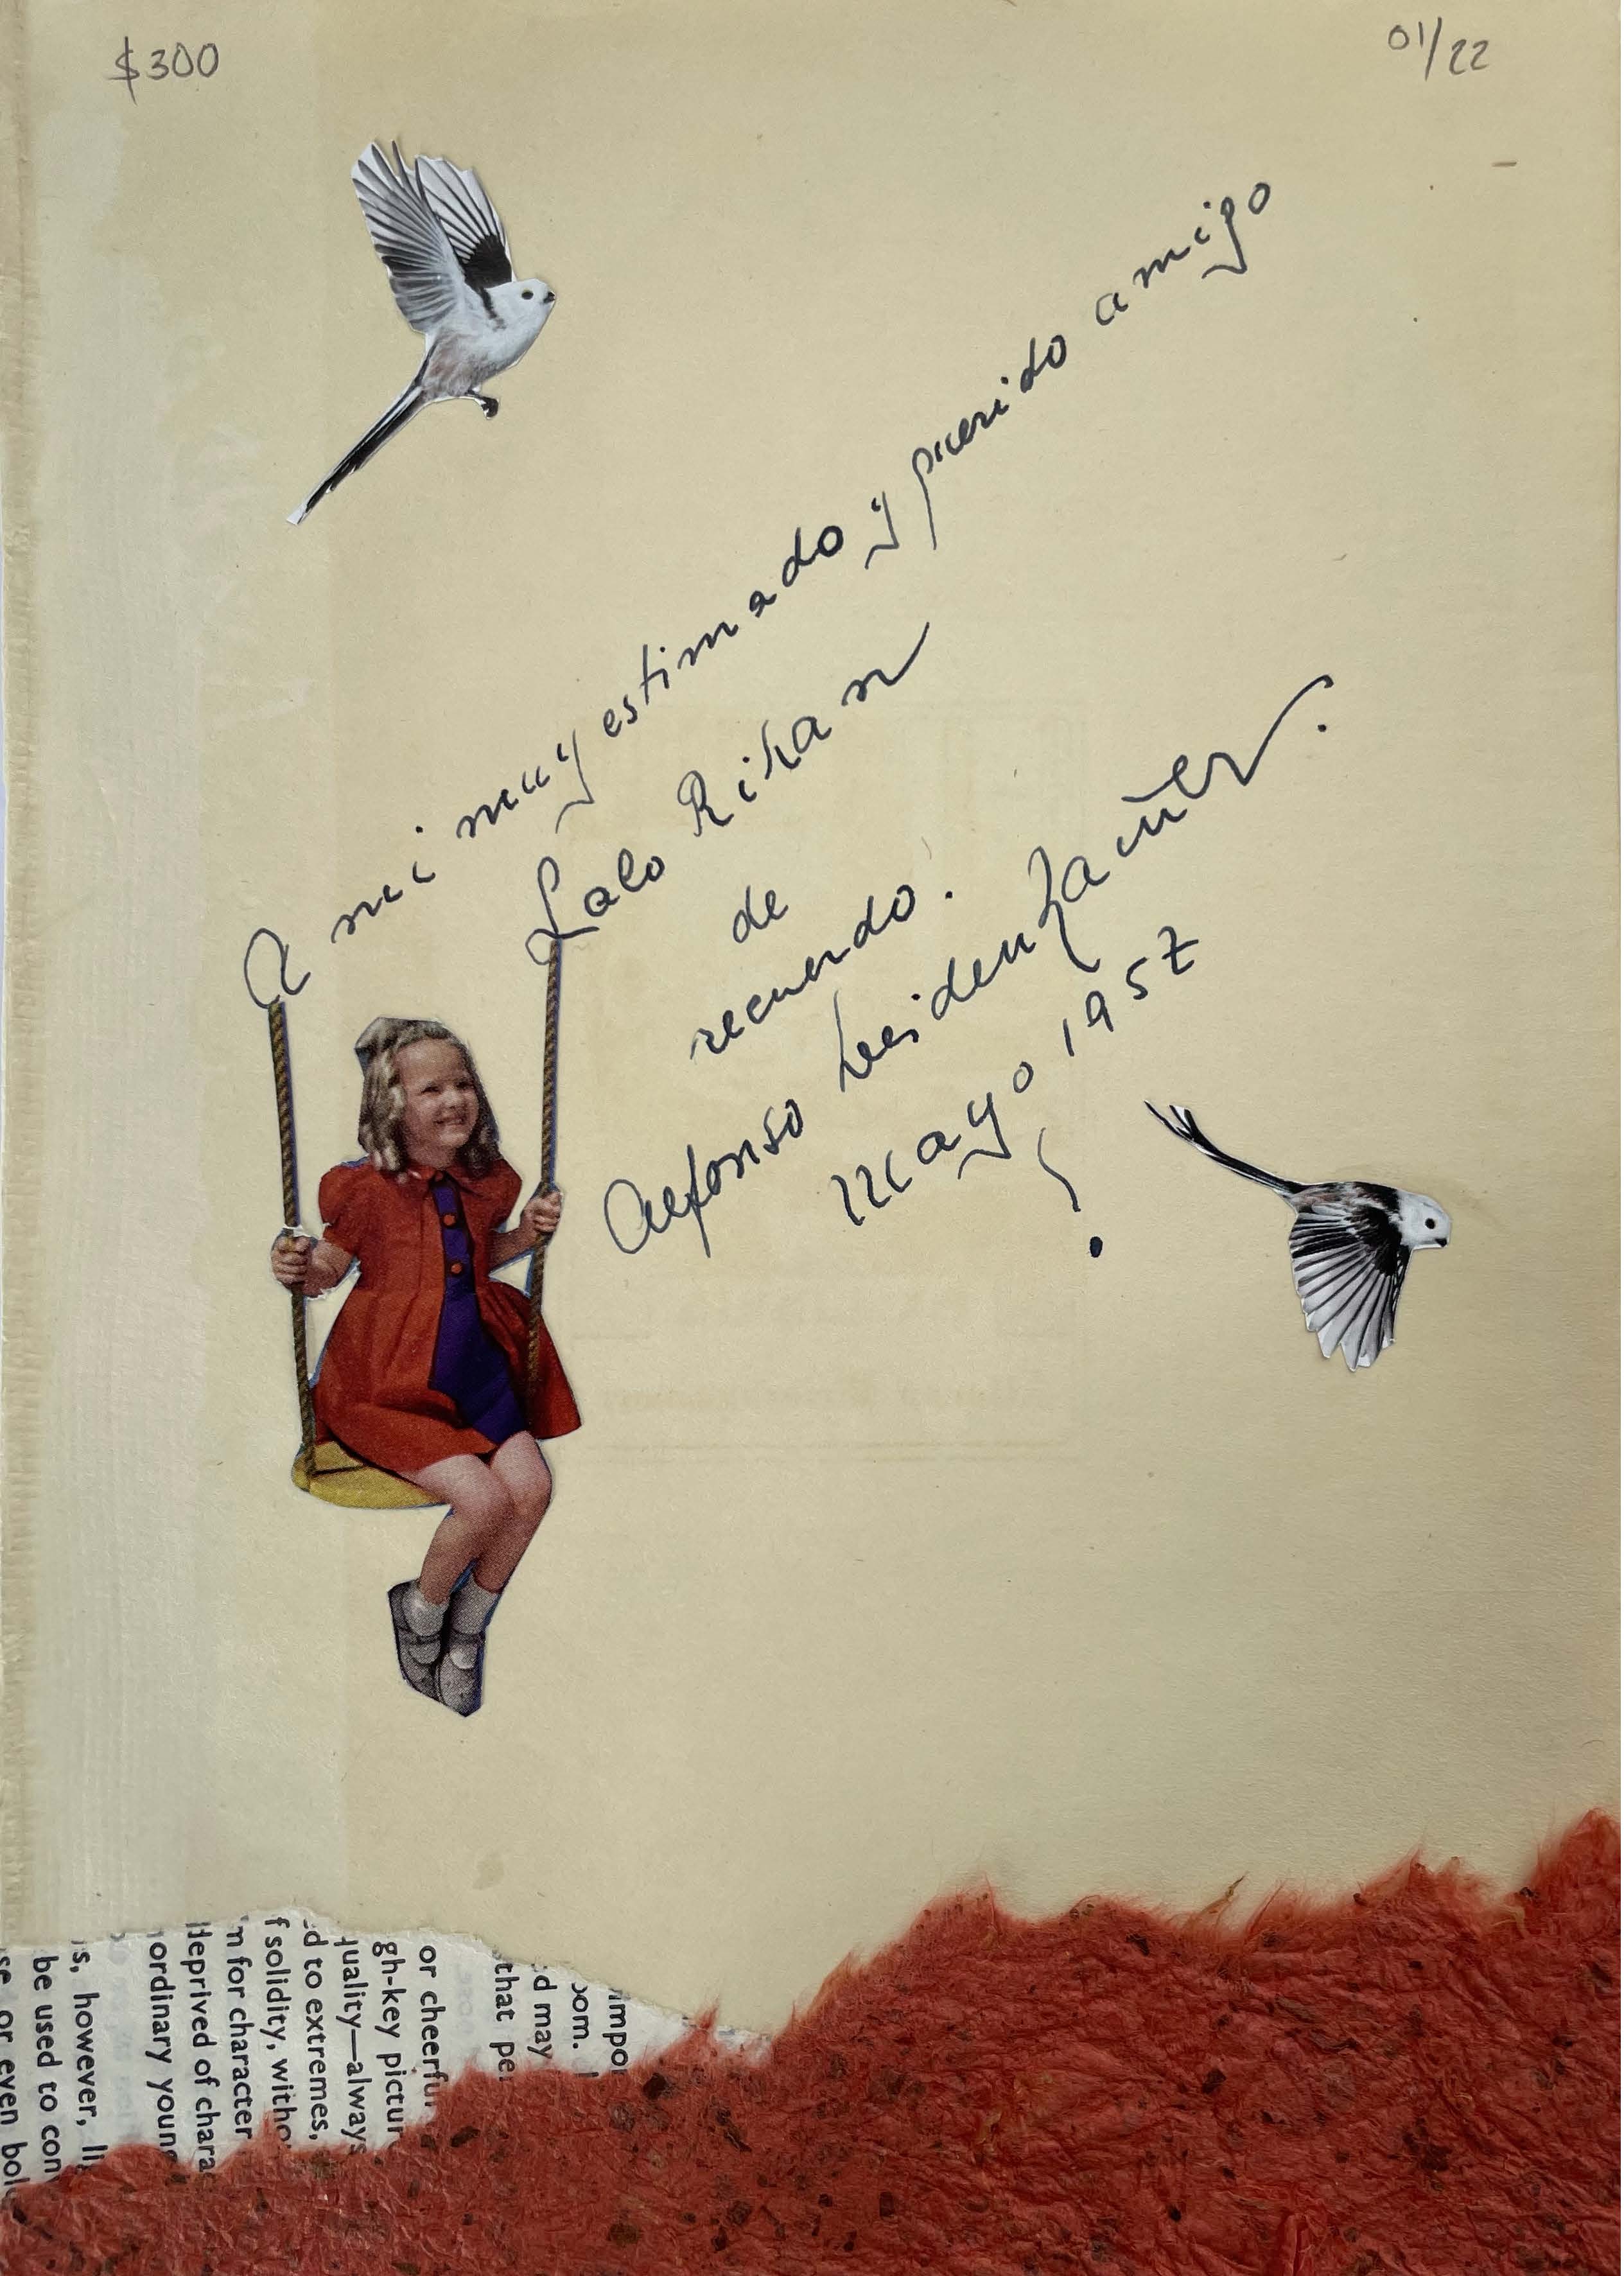 $300
01/22
A mi muy estimado y querido amigo
Lalo
de
recuerdo.
Alfonso
Mayo 1957
impor
oom.
d may
that pe
or cheerfu
gh-key pictur
uality—always
d to extremes,
f solidity, witho
m for character
deprived of chara
ordinary young
s, however, li
be used to con
se or even bol